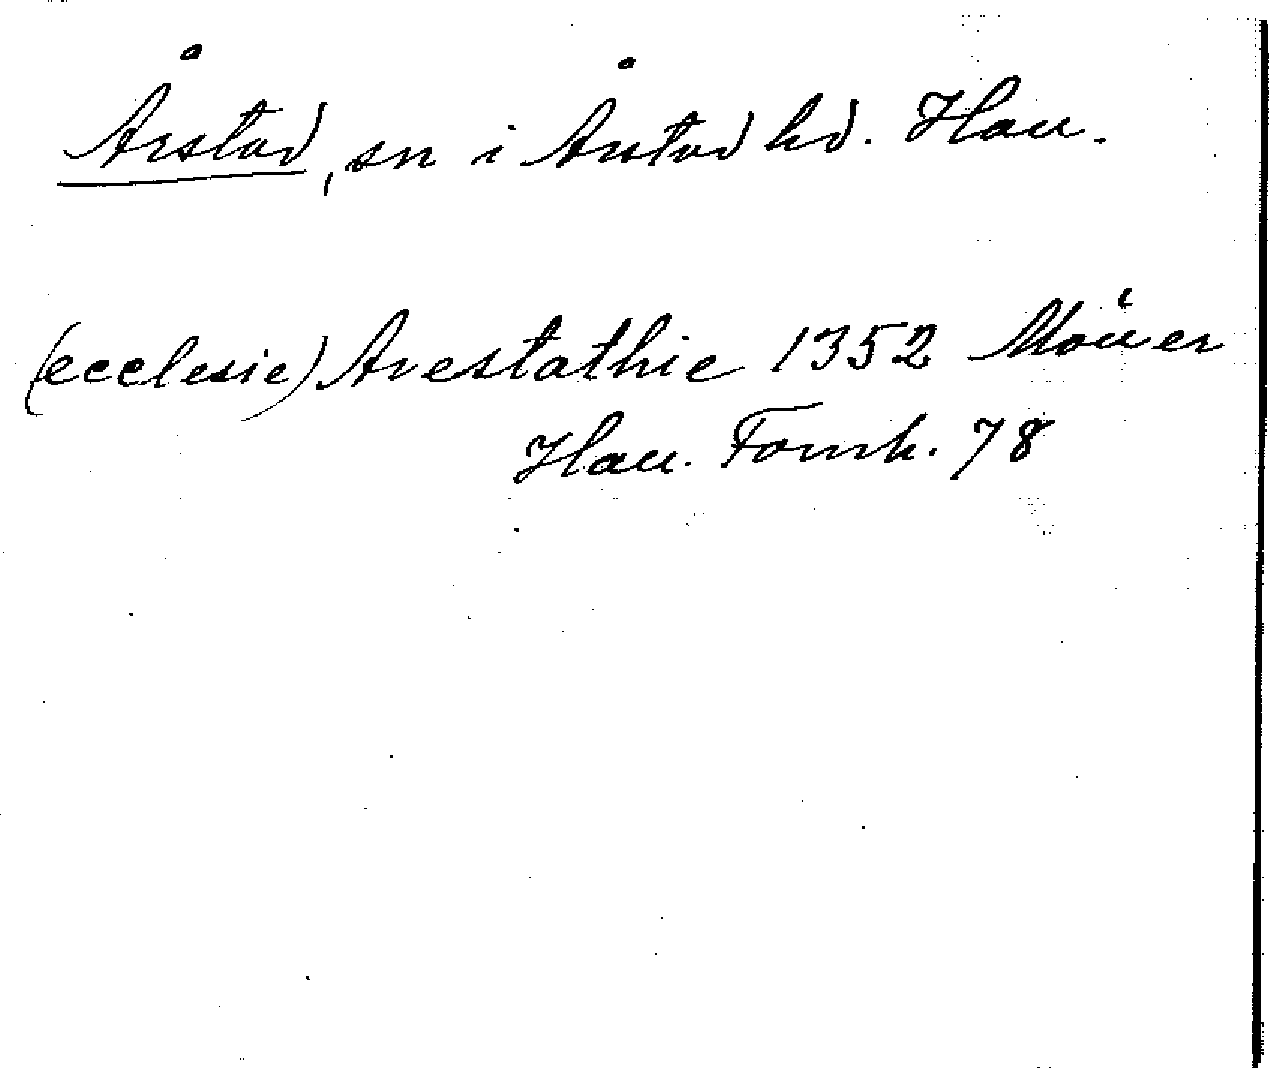 Årstad, sn i Årstad hd. Hall.
(ecclesie) Arestathie 1352 Möller
Hall. Fornh. 78